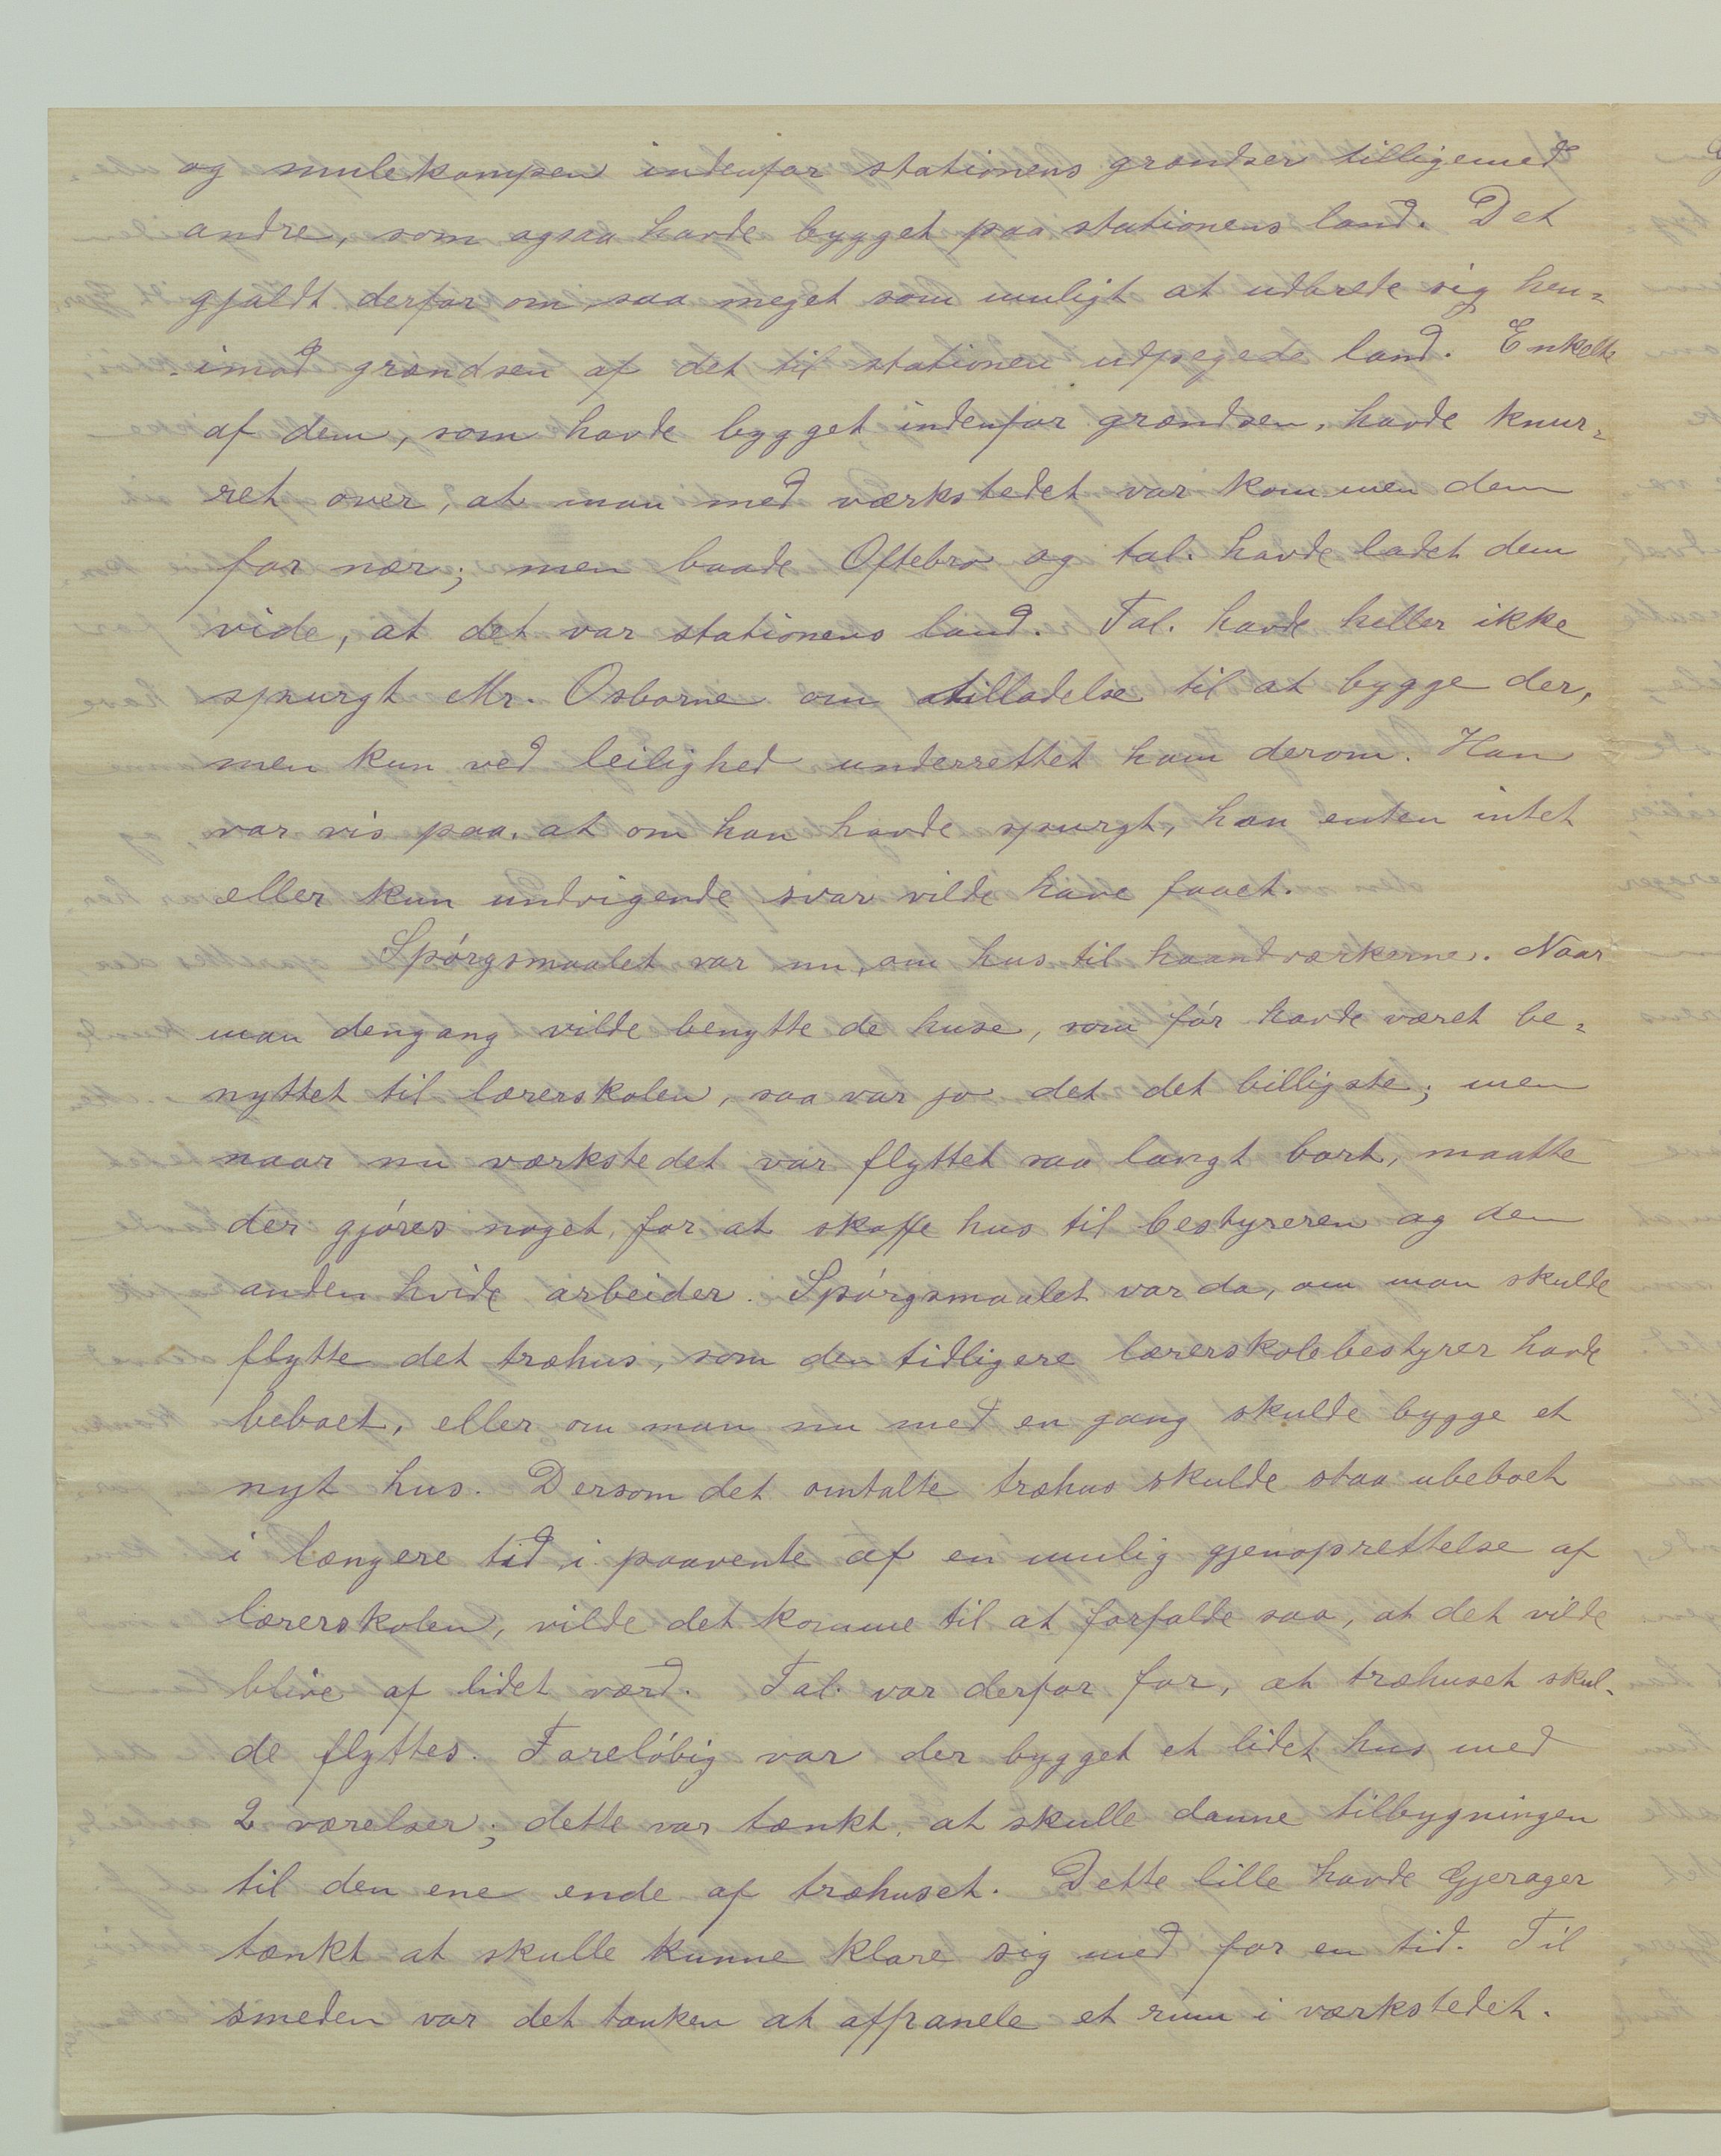 og mulekampen indenfor stationens grændser tilligemed
andre, som ogsaa havde bygget paa stationens land. Det
gjaldt derfor om saa meget som muligt at udbrede sig hen-
imod grændsen af det til stationen udpegede land. Enkelte
af dem, som havde bygget indenfor grændsen, havde knur-
ret over, at man med værkstedet var kommen dem
for nær; men baade Oftebro og tal. havde ladet dem
vide, at det var stationens land. Tal. havde heller ikke
spurgt Mr. Osborne om tilladelse til at bygge der,
men kun ved leilighed underrettet ham derom. Han
var vis paa, at om han havde spurgt, han enten intet
eller kun undvigende svar vilde have faaet.
Spórgsmaalet var nu, om hus til haandværkerne. Naar
man dengang vilde benytte de huse, som fór havde været be-
nyttet til lærerskolen, saa var jo det det billigste; men
naar nu værkstedet var flyttet saa langt bort, maatte
der gjóres noget, for at skaffe hus til bestyreren og den
anden hvide arbeider. Spórgsmaalet var da, om man skulde
flytte det træhus, som den tidligere lærerskolebestyrer havde
beboet, eller om man nu med en gang skulde bygge et
nyt hus. Dersom det omtalte træhus skulde staa ubeboet
i længere tid i paavente af en mulig gjenoprettelse af
lærerskolen, vilde det komme til at forfalde saa, at det vilde
blive af lidet værd. Tal. var derfor for, at træhuset skul-
de flyttes. Forelóbig var der bygget et lidet hus med
2 værelser; dette var tænkt, at skulle danne tilbygningen
til den ene ende af træhuset. Dette lille havde Gjerager
tænkt at skulle kunne klare sig med for en tid. Til
smeden var det tanken at afpanele et rum i værkstedet.